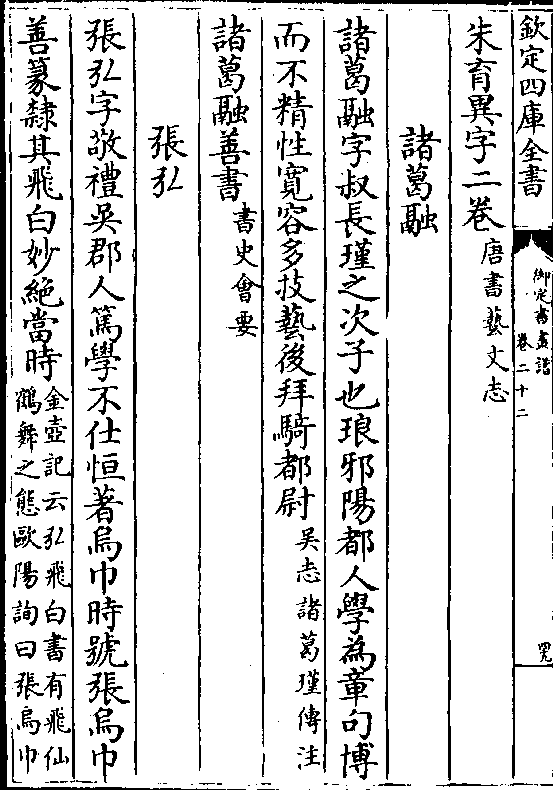 欽定四庫全書
御定書畫譜
卷二十二
朱育異字二卷唐書藝文志
諸葛融
諸葛融字叔長瑾之次子也琅邪陽都人學為章句博
而不精性寛容多技藝後拜騎都尉吳志諸葛瑾傳注
諸葛融善書書史會要
張弘
張弘字敬禮吳郡人篤學不仕恒著烏巾時號張烏巾
善篆隸其飛白妙絶當時金壺記云弘飛白書有飛仙
鶴舞之態歐陽詢曰張烏巾